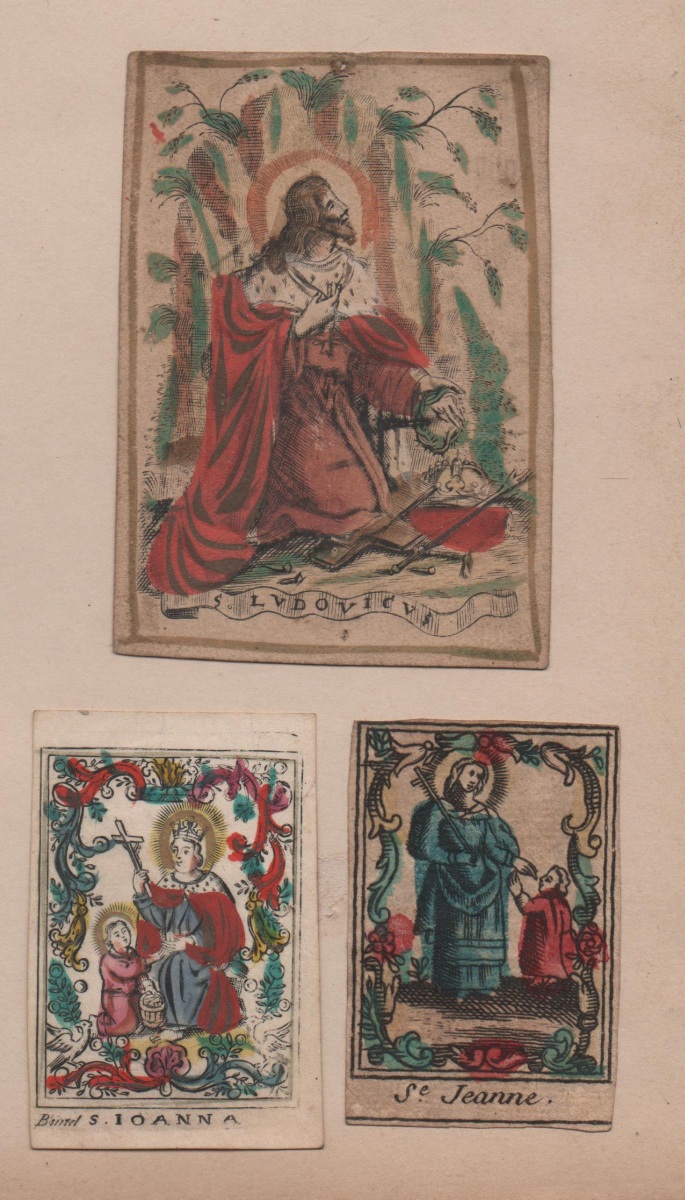 S. LVDOVICVS
S. IOANNA
Sᵉ Jeanne.